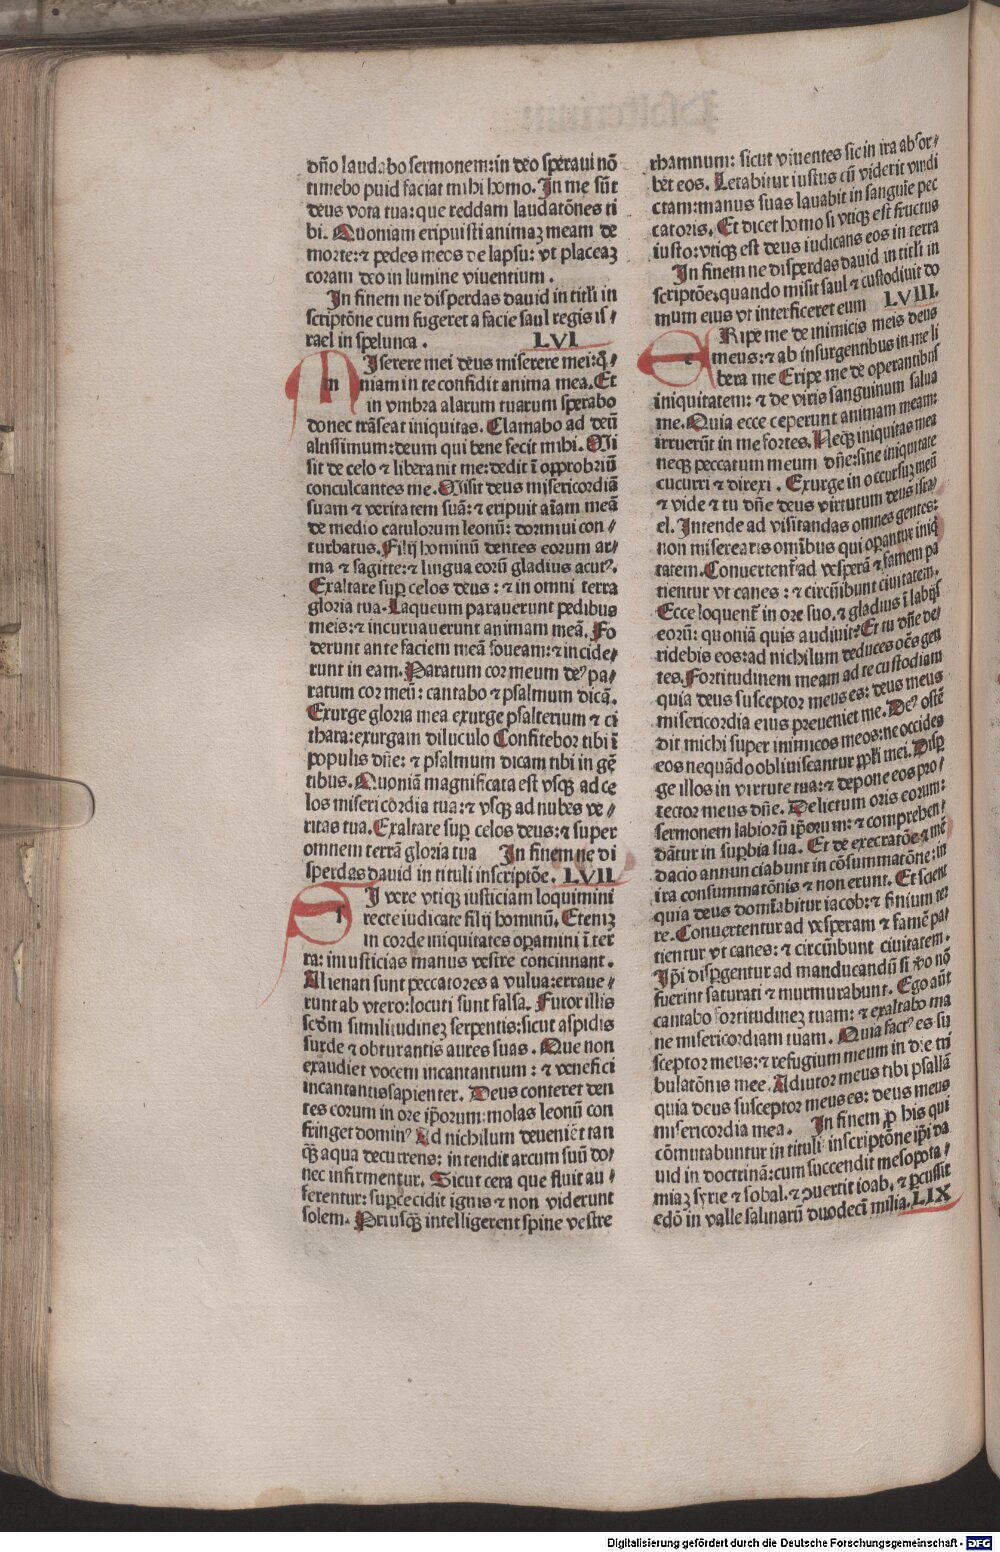 dño laudabo sermonem: in deo speraui nō
timebo quid faciat mihi homo. In me sūt
deus vota tua: que reddam laudatōnes ti
bi. Quoniam eripuisti animaꝫ meam de
morte: ⁊ pedes meos de lapsu: vt placeaꝫ
coram deo in lumine viuentium.
In finem ne disperdas dauid in titĺi in
scriptōne cum fugeret a facie saul regis is⸗
rael in spelunca. LVI
m Iserere mei deus miserere mei: q̄⸗
niam in te confidit anima mea. Et
in vmbra alarum tuarum sperabo
donec trāseat iniquitas. Clamabo ad deū
altissimum: deum qui bene fecit mihi. Mi
sit de celo ⁊ liberauit me: dedit ī opprobriū
conculcantes me. Misit deus misericordiā
suam ⁊ veritatem suā: ⁊ eripuit aīam meā
de medio catulorum leonū: dormiui con⸗
turbatus. Filij hominū dentes eorum ar⸗
ma ⁊ sagitte: ⁊ lingua eorū gladius acutꝰ.
Exaltare suꝑ celos deus: ⁊ in omni terra
gloria tua. Laqueum parauerunt pedibus
meis: ⁊ incuruauerunt animam meā. Fo
derunt ante faciem meā foueam: ⁊ incide⸗
runt in eam. Paratum cor meum deꝰ pa⸗
ratum cor meū: cantabo ⁊ psalmum dicā.
Exurge gloria mea exurge psalterium ⁊ ci
thara: exurgam diluculo Confitebor tibi ī
populis dñe: ⁊ psalmum dicam tibi in gē
tibus. Quoniā magnificata est vsqꝫ ad ce
los misericordia tua: ⁊ vsqꝫ ad nubes ve⸗
ritas tua. Exaltare suꝑ celos deus: ⁊ super
omnem terrā gloria tua In finem ne di
sperdas dauid in tituli inscriptōe. LVII
s I vere vtique iusticiam loquimini
recte iudicate filij hominū. Etenīꝫ
in corde iniquitates oꝑamini ī ter
ra: iniusticias manus vestre concinnant.
Alienati sunt peccatores a vulua: erraue⸗
runt ab vtero: locuti sunt falsa. Furor illis
scḋm similitudineꝫ serpentis: sicut aspidis
surde ⁊ obturantis aures suas. Que non
exaudiet vocem incantantium: ⁊ venefici
incantantis sapienter. Deus conteret den
tes eorum in ore ip̄orum: molas leonū con
fringet dominꝰ Ad nichilum deueniēt tan
qꝫ aqua decurrens: intendit arcum suū do⸗
nec infirmentur. Sicut cera que fluit au⸗
ferentur: suꝑcecidit ignis ⁊ non viderunt
solem. Priusqꝫ intelligerent spine vestre
rhamnum: sicut viuentes sic in ira absor⸗
bet eos. Letabitur iustus cū viderit vindi
ctam: manus suas lauabit in sanguīe pec
catoris. Et dicet homo si vtiqꝫ est fructus
iusto: vtiqꝫ est deus iudicans eos in terra
In finem ne disperdas dauid in titĺi in
scriptōe. quando misit saul ⁊ custodiuit do
mum eius vt interficeret eum LVIII.
e Ripe me de inimicis meis deus
meus: ⁊ ab insurgentibus in me li
bera me Eripe me de operantibus
iniquitatem: ⁊ de viris sanguinum salua
me. Quia ecce ceperunt animam meam:
irruerūt in me fortes. Neqꝫ iniquitas mea
neqꝫ peccatum meum dñe: sine iniquitate
cucurri ⁊ direxi. Exurge in occursuꝫ meū
⁊ vide ⁊ tu dñe deus virtutum deus isra⸗
el. Intende ad visitandas omnes gentes:
non miserearis omībus qui oꝑantur iniqi
tatem. Conuertenť ad vesperā ⁊ famem pa
tientur vt canes: ⁊ circūibunt ciuitatem.
Ecce loquenť in ore suo. ⁊ gladius ī labijs
eorū: quoniā quis audiuit: Et tu dñe de⸗
ridebis eos: ad nichilum deduces oēs gen
tes. Fortitudinem meam ad te custodiam
quia deus susceptor meus es: deus meus
misericordia eius preueniet me. Deꝰ ostē
dit michi super inimicos meos: ne occides
eos nequādo obliuiscantur ꝓpĺi mei. Disꝑ
ge illos in virtute tua: ⁊ depone eos pro⸗
tector meus dñe. Delictum oris eorum:
sermonem labiorū ip̄orum: ⁊ comprehen⸗
dātur in suꝑbia sua. Et de execratōe ⁊ mē
dacio annunciabunt in cōsummatōne: in
ira consummatōnis ⁊ non erunt. Et scient
quia deus domīabitur iacob: ⁊ finium ter
re. Conuertentur ad vesperam ⁊ famē pa⸗
tientur vt canes: ⁊ circūibunt ciuitatem.
Ip̄i disꝑgentur ad manducandū si v̊o nō
fuerint saturati ⁊ murmurabunt. Ego aūt
cantabo fortitudineꝫ tuam: ⁊ exaltabo ma
ne misericordiam tuam. Quia factꝰ es su
sceptor meus: ⁊ refugium meum in die tri
bulatōnis mee. Adiutor meus tibi psallā
quia deus susceptor meus es: deus meus
misericordia mea. In finem ꝓ his qui
cōmutabuntur in tituli inscriptōne ip̄i da
uid in doctrinā: cum succendit mesopota⸗
miaꝫ syrie ⁊ sobal. ⁊ ꝯuertit ioab. ⁊ ꝑcussit
edō in valle salinarū duodecī milia. LIX
Digitalisierung gefördert durch die Deutsche Forschungsgemeinschaft - DFG